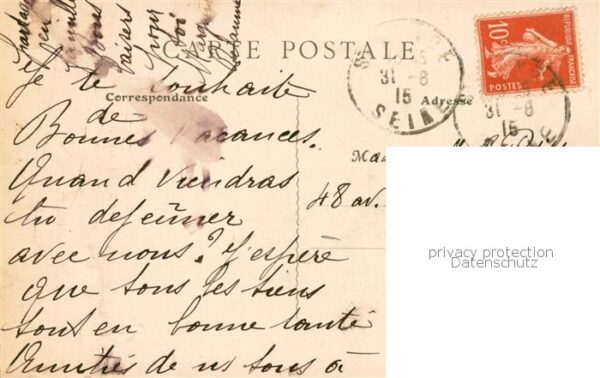 CARTE POSTALE
Correspondance
Adresse
10c
REPUBLIQUE
FRANÇAISE
POSTES
31 -8
15
SEINE
31 -8
15
Je te souhaite
de
Bonnes vacances.
Quand viendras
tu dejeûner
avec nous? J'espère
que tous les tiens
sont en bonne santé
Amitiés de ns tous à
en
famille
bons
baisers
pour
toi
48 av.
privacy protection
Datenschutz